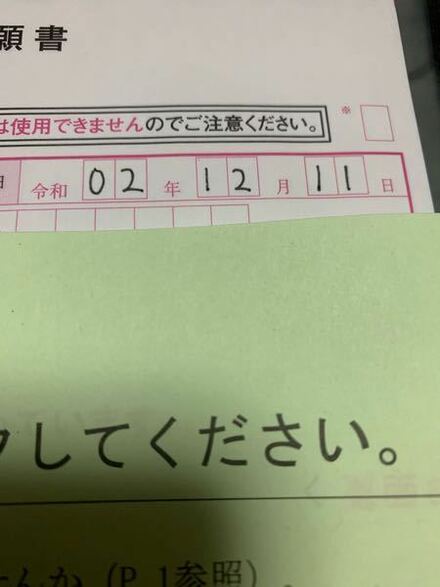 願書
は使用できませんのでご注意ください。
※
日 令和 02 年 12 月 11 日
クしてください。
せんか（P.1参照）.